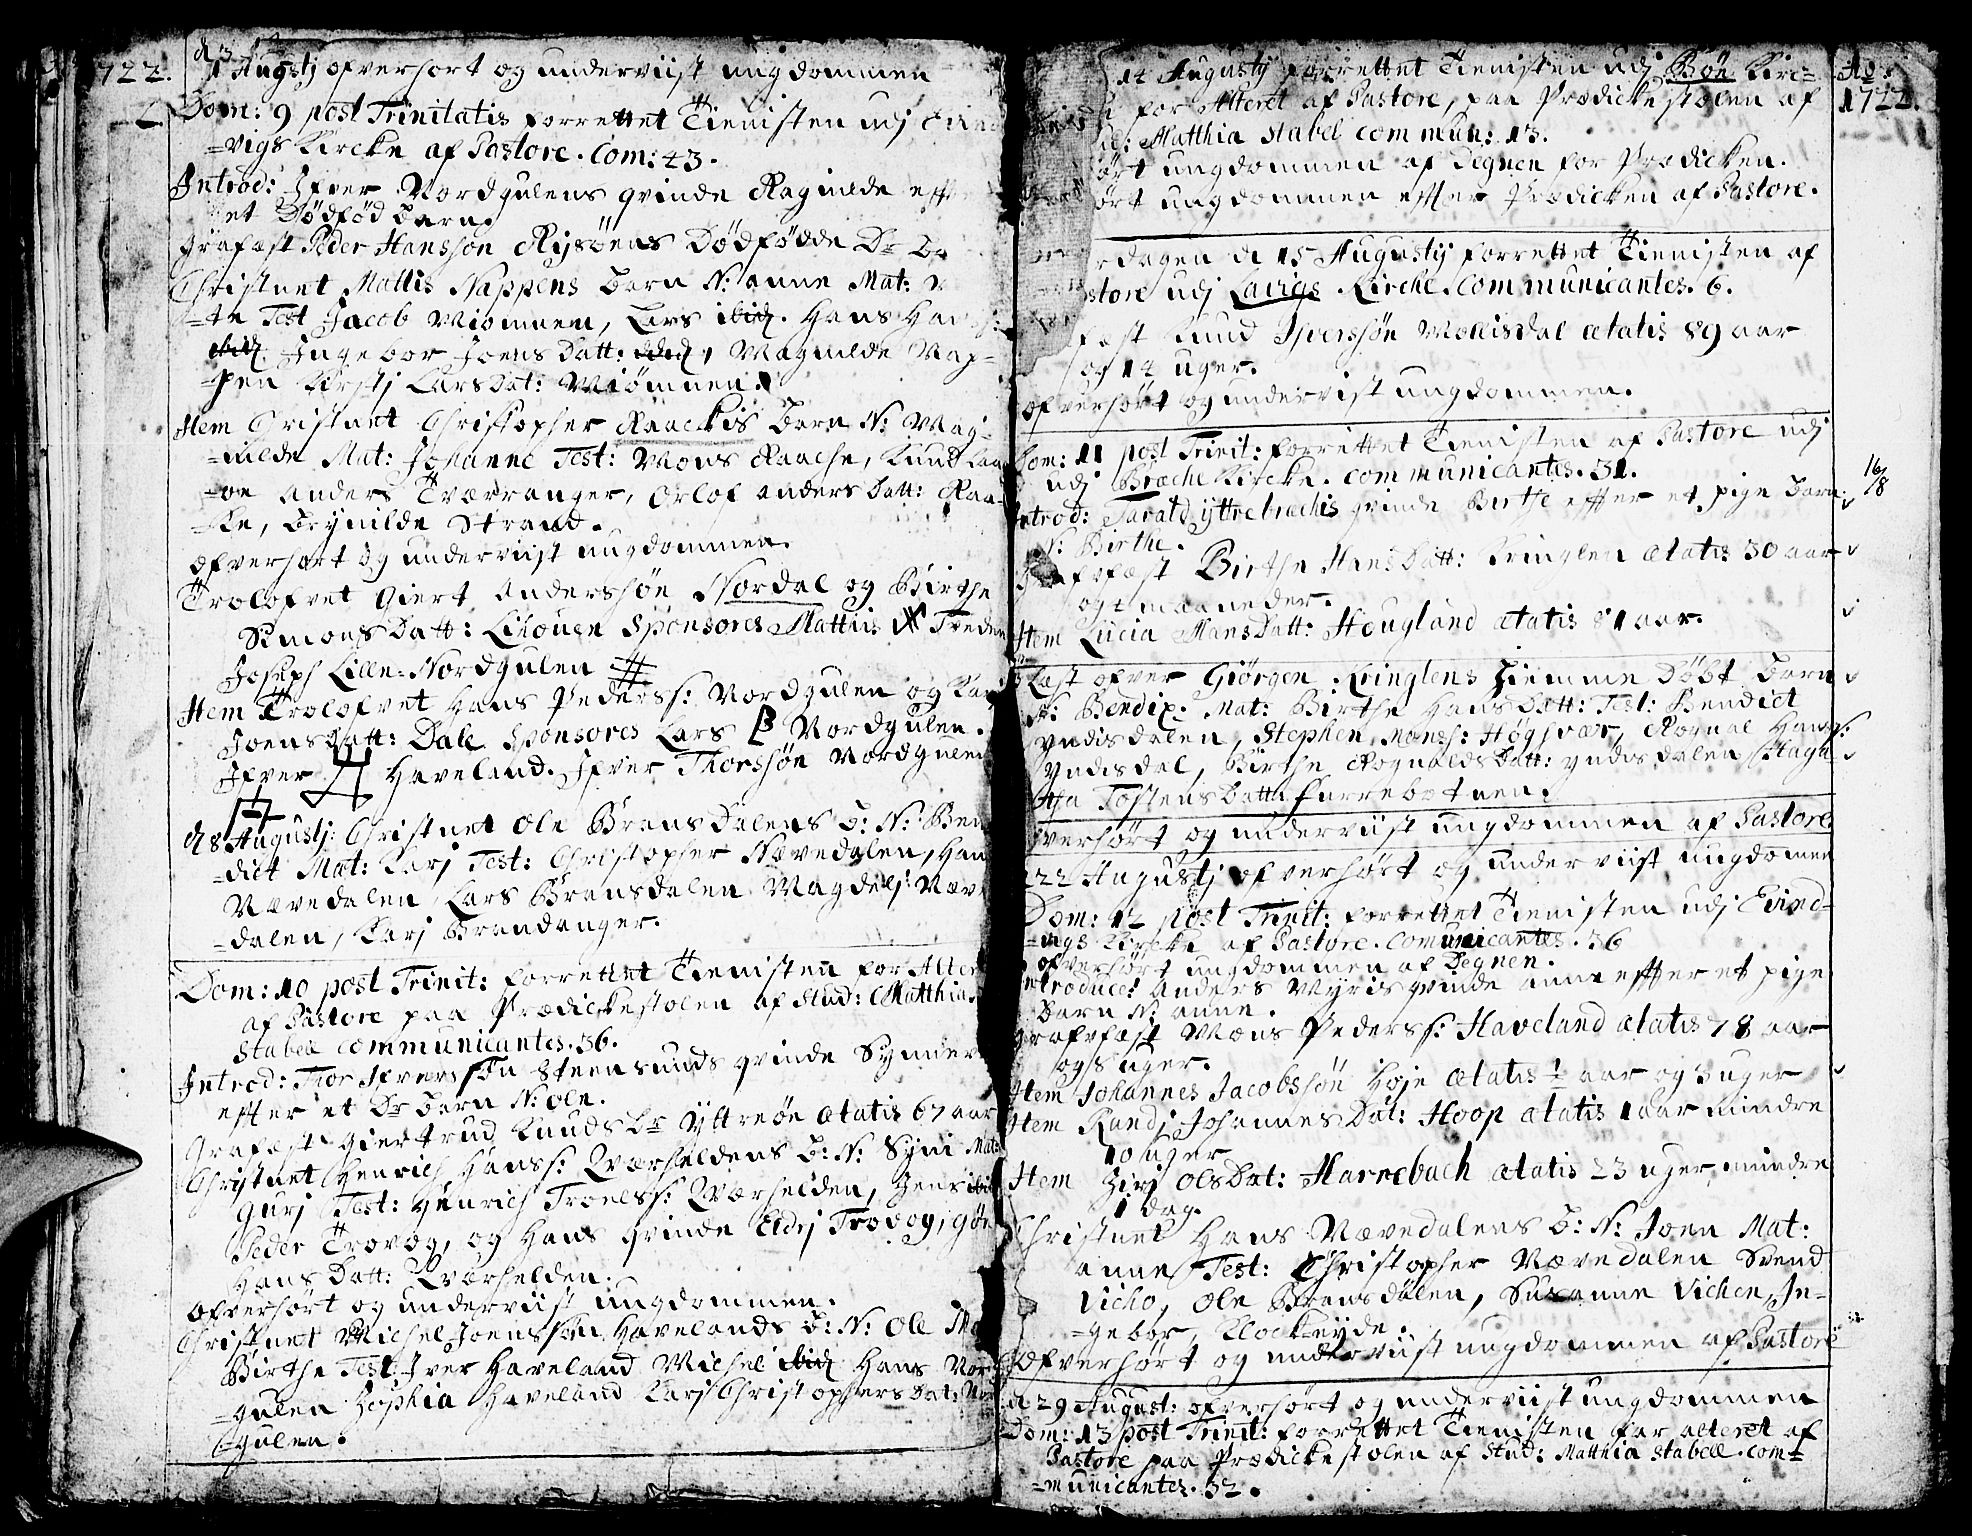 722.
1 Augustj ofverhort og underviist ungdommen
Dom: 9 post Trinitatis forrettet Tienisten udj
=vigs Kircke af Pastore. Com: 43.
Introd: Ifver Nordgulens qvinde Ragnilde eff
et Dødfød barn.
Grafæst Peder Hanssøn Rysøens Dødfødde Dr
Christnet Mattis Nappens barn N: anne Mat:
Test Jacob Miømnen, Lars ibid. Hans
ibid. Ingebor Joens Datt: Magnilde Nap=
=pen Kirstj Lars Dat: Miømnen.
Item Christnet Christopher Raackis barn N: Mag=
=nilde Mat: Johanne Test: Mons Raache, Knud
Anders Tværranger, Orlof anders Datt: Raa=
=ke, Brynilde Strand.
ofverhørt og underviist ungdommen.
Trolofvet Giert Anderssøn Nordal og Birthe
Simons Datt: Lihouen Sponsores Matthis
Joseph Lille=Nordgulen
Item Trolofvet Hans Pederss: Nordgulen og
Joens Datt: Dale Sponsores Lars Nordgulen.
Ifver Haveland. Ifver Thorssøn Nordgulen
d 8 Augustj: Christnet Ole Bransdalens b: N: Ben
=dict Mat: Karj Test: Christopher Nævedalen, Han
Nævedalen, Lars Bransdalen Magdelj: Næve
=dalen, Karj Brandanger.
Dom: 10 post Trinit: forrettet Tienisten for Alter
af Pastore paa Prædickestolen af Stud: Matthia
Stabell communicantes. 36.
Introd: Thor Ifverssøn Steensunds qvinde
effter et Dr barn N: Ole.
Grafæst Giertrud Knuds Dr Yttreøn ætatis 67 aar
Christnet Henrich Hanss: Qværheldens b: N: Syni Mat:
Gurj Test: Henrich Troelss: Qværhelden, Jens ibid
Peder Trovog, og Hans qvinde Eldj Trovog,
Hans Datt: Qværhelden.
ofverhørt og underviist ungdommen.
Christnet Michel Joenssøn Havelands b: N: Ole
Birthe Test: Iver Haveland Michel ibid Hans Nor
=gulen Sophia Haveland Karj Christophers Dat: Nor
=gulen.
Ao:
1722.
14 Augustj forrettet Tienisten udj Bøe Kirc=
for Alteret af Pastore, paa Prædickestolen af
Matthia Stabel commun: 13.
ørt ungdommen af Degnen for Prædicken.
ørt ungdommen effter Prædicken af Pastore.
rdagen d 15 Augustj forrettet Tienisten af
store udj Lavigs Kirche. communicantes. 6.
fæst Knud Iverssøn Mollisdal ætatis 89 aar
og 14 uger.
ofverhørt og underviist ungdommen.
Dom: 11 post Trinit: forrettet Tienisten af Pastore udj
udj Bræche Kircke. communicantes. 31.
16/8
Introd: Tarald yttrebrechis qvinde Birthe effter et pige barn
N: Birthe.
Grafvfæst Birthe Hans Datt: Kringlen ætatis 30 aar
og maaneder.
Item Lucia Mans Datt: Hougland ætatis 81 aar.
læst ofver Giørgen Kringlens hiemme Døbt barn
N: Bendix. Mat: Birthe Hans Datt: Test: Bendict
Yndisdalen, Stephen Monss: Høgsvær, Rognal Hanss:
Yndisdal, Birthe Rognalds Datt: yndisdalen Maga
tha Tostens Datt: Furrebotnen.
fverhørt og underviist ungdommen af Pastore.
22 Augustj ofverhørt og underviist ungdomen
Dom: 12 post Trinit: forrettet Tienisten udj Evind=
=vigs Kircke af Pastore. Comunicantes. 36
ofverhørt ungdommen af Degnen.
Introduce: Anders Myris qvinde anne effter et pige
barn N: anne.
Grafvfæst Mons Pederss: Haveland ætatis 78 aar
og 5 uger.
Item Johannes Jacobssøn høje ætatis ½ aar og 3 uger
Item Randj Johannes Dat: Hoop ætatis 1 aar mindre
10 uger
Item Olsdat: Harrebach ætatis 23 uger mindre
1 dag.
Christnet Hans Nævedalens b: N: Joen Mat:
anne Test: Christopher Nævedalen Svend
Vicho, Ole Bransdalen, Susanne Vichen, In=
=gebor, Klockeyde.
Ofverhørt og underviist ungdommen af Pastore
d 29 August: ofverhørt og underviist ungdommen
Dom: 13 post Trinit: forrettet Tienisten for alteret af
Pastore paa Prædickestolen af Stud: Matthia Stabell. com=
=municantes. 32.